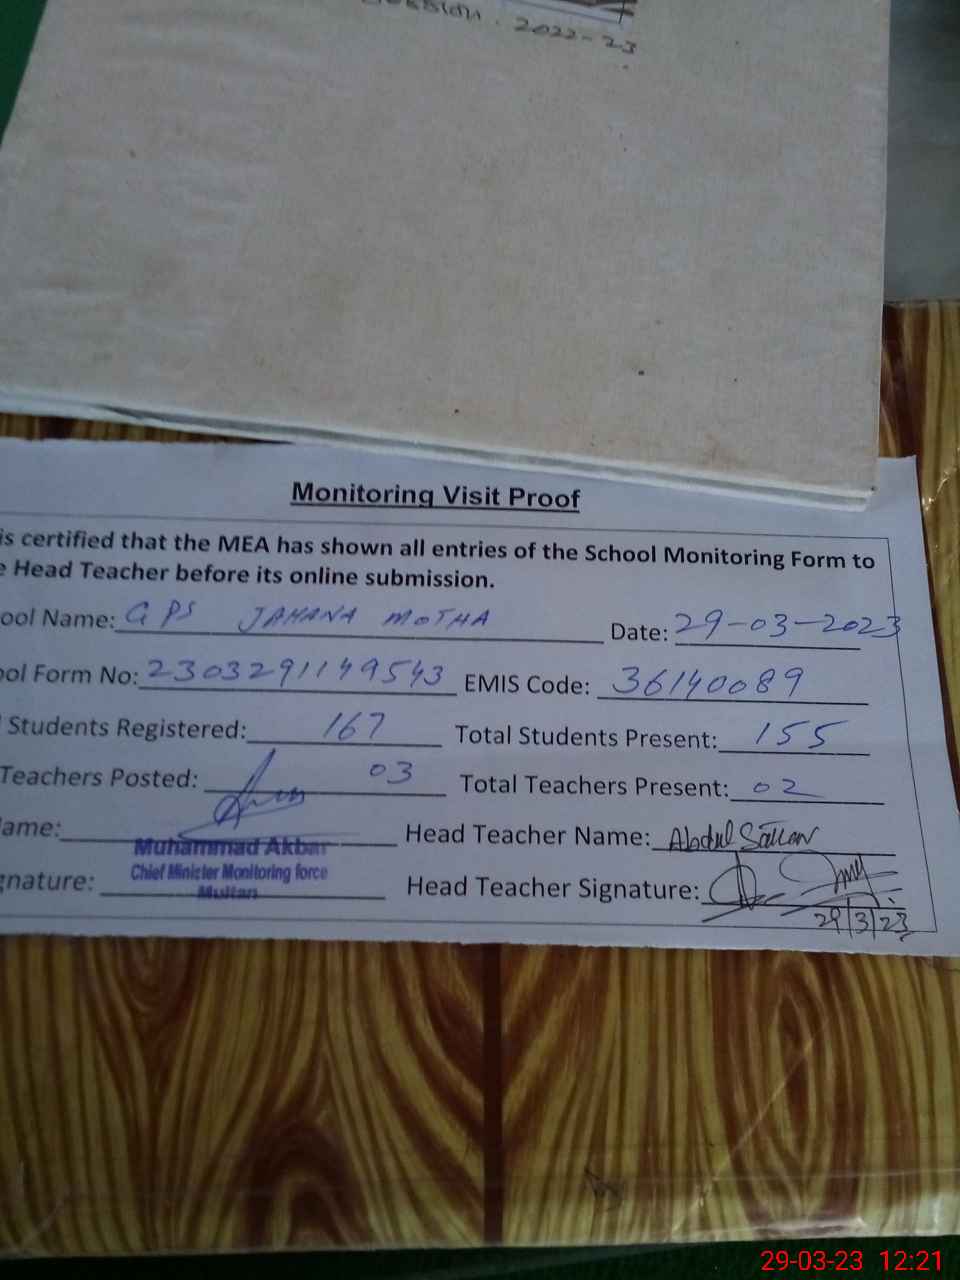 2022-23
Monitoring Visit Proof
is certified that the MEA has shown all entries of the School Monitoring Form to
e Head Teacher before its online submission.
ool Name: GPS JAHANA MOTHA Date: 29-03-2023
ool Form No: 2303291149543 EMIS Code: 36140089
Students Registered: 167 Total Students Present: 155
Teachers Posted: 03 Total Teachers Present: 02
ame: Head Teacher Name: Abdul
Muhammad Akbar
Chief Minister Monitoring force
Multan
gnature: Head Teacher Signature:
29/3/23
29-03-23 12:21